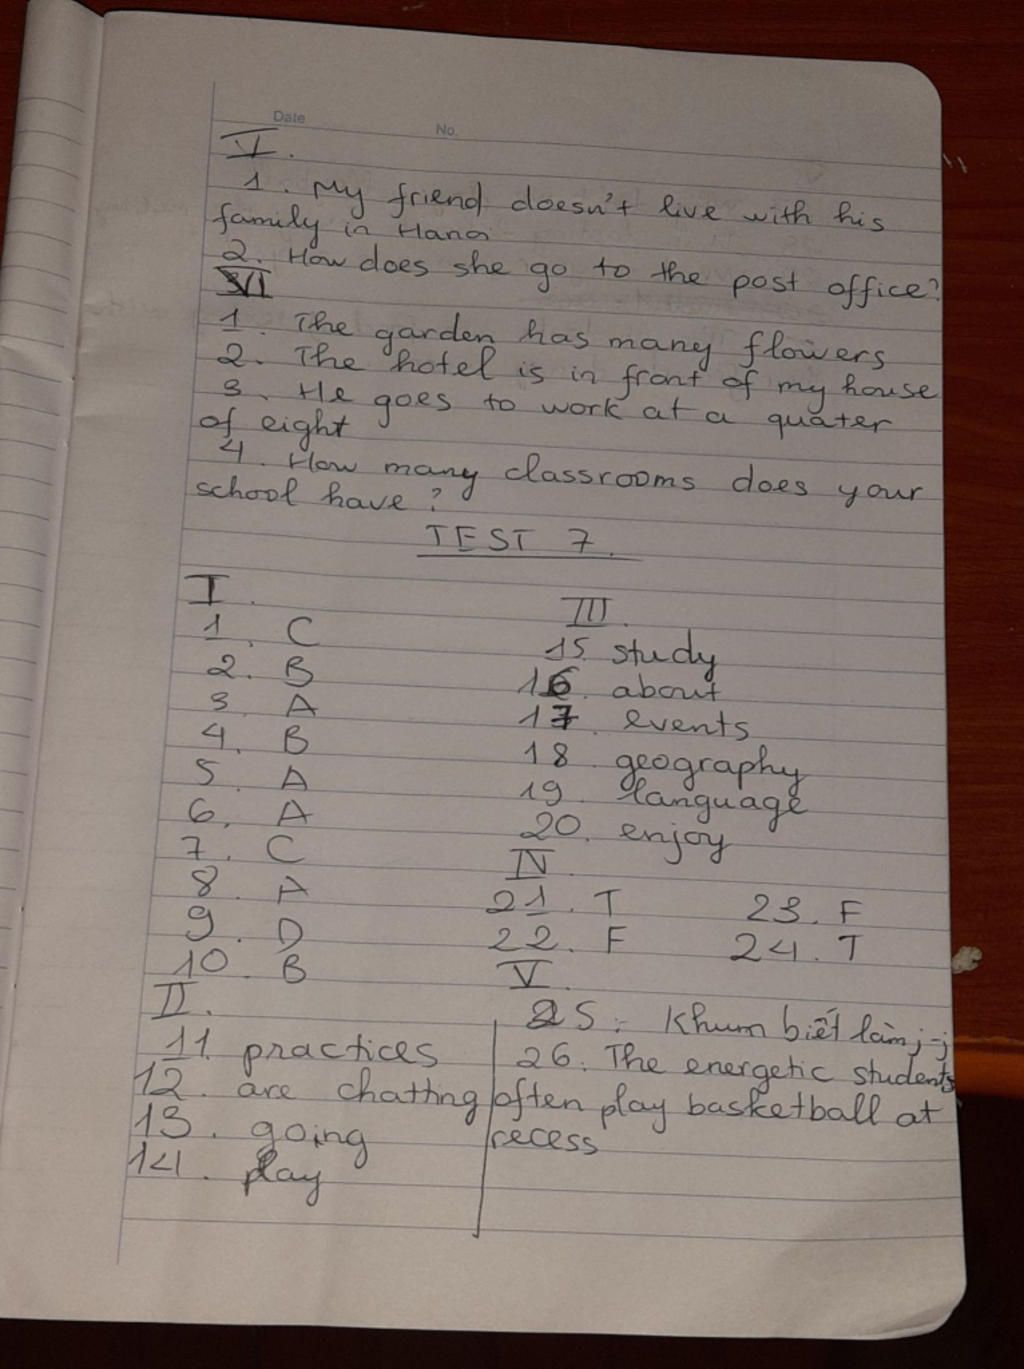 Date No.
V.
1. My friend doesn't live with his
family in Hanoi
2. How does she go to the post office?
VI
1. The garden has many flowers
2. The hotel is in front of my house
3. He goes to work at a quater
of eight
4. How many classrooms does your
school have?
TEST 7.
I.
1. C
2. B
3. A
4. B
5. A
6. A
7. C
8. A
9. D
10. B
II.
11. practices
12. are chatting
13. going
14. play
III.
15. study
16. about
17. events
18. geography
19. language
20. enjoy
IV
21. T 23. F
22. F 24. T
V.
25: Khum biết làm ;-;
26. The energetic students
often play basketball at
recess